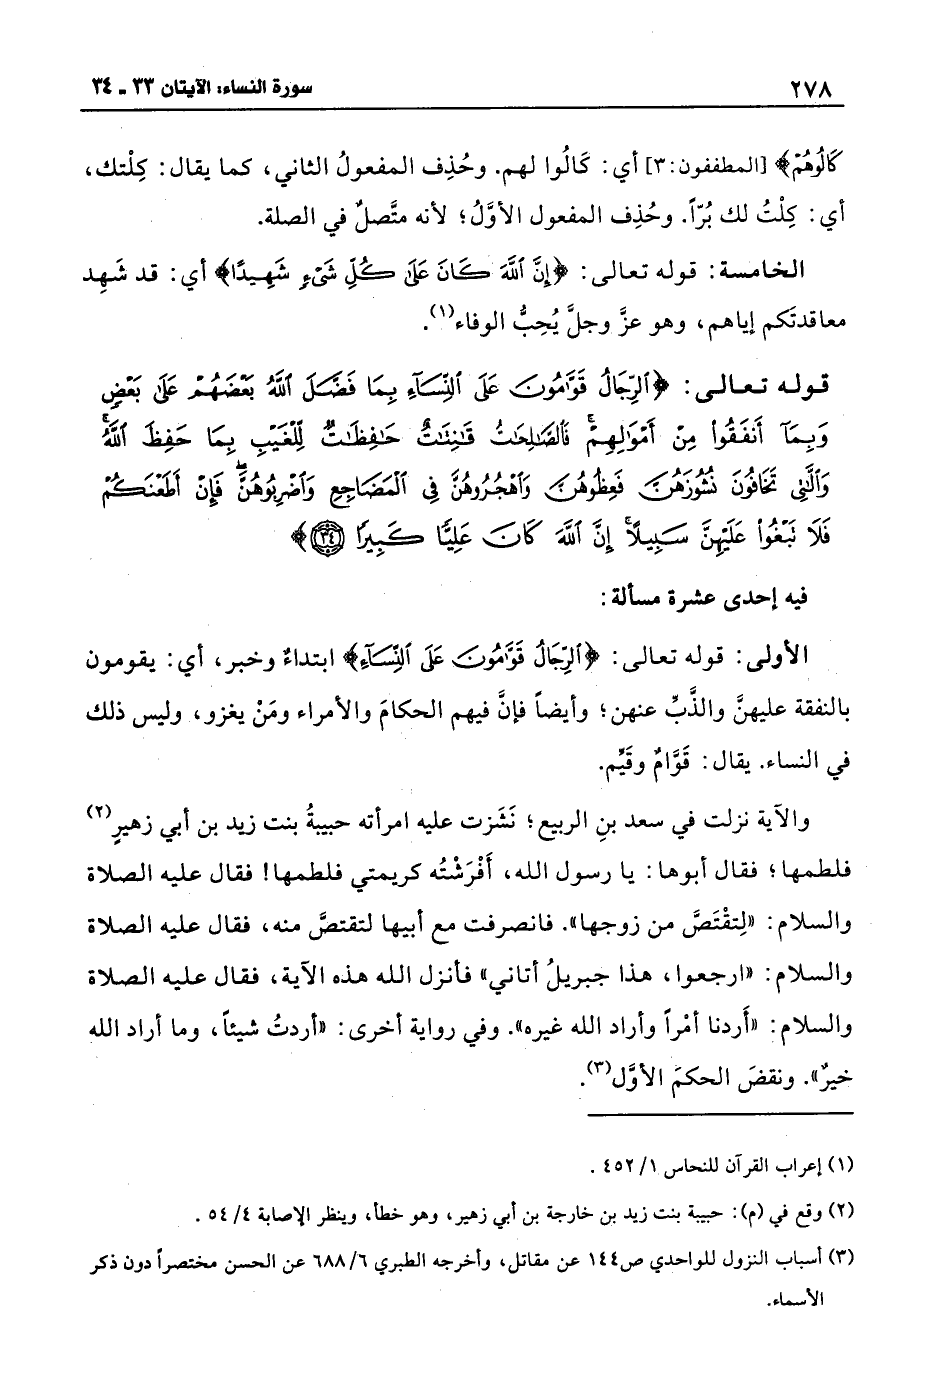 ٢٧٨
سورة النساء: الآيتان ٣٣ ـ ٣٤
كَالُوهُمْ﴾ [المطففون:٣] أي: كَالُوا لهم. وحُذِف المفعولُ الثاني، كما يقال: كِلْتك،
أي: كِلْتُ لك بُرّاً. وحُذِف المفعول الأوَّلُ؛ لأنه متَّصلٌ في الصلة.
الخامسة: قوله تعالى: ﴿إِنَّ ٱللَّهَ كَانَ عَلَىٰ كُلِّ شَىْءٍ شَهِيدًا﴾ أي: قد شَهِد
معاقدتَكم إياهم، وهو عزَّ وجلَّ يُحِبُّ الوفاء(١).
قوله تعالى: ﴿ٱلرِّجَالُ قَوَّٰمُونَ عَلَى ٱلنِّسَآءِ بِمَا فَضَّلَ ٱللَّهُ بَعْضَهُمْ عَلَىٰ بَعْضٍ
وَبِمَآ أَنفَقُوا۟ مِنْ أَمْوَٰلِهِمْ ۚ فَٱلصَّٰلِحَٰتُ قَٰنِتَٰتٌ حَٰفِظَٰتٌ لِّلْغَيْبِ بِمَا حَفِظَ ٱللَّهُ ۚ
وَٱلَّٰتِى تَخَافُونَ نُشُوزَهُنَّ فَعِظُوهُنَّ وَٱهْجُرُوهُنَّ فِى ٱلْمَضَاجِعِ وَٱضْرِبُوهُنَّ ۖ فَإِنْ أَطَعْنَكُمْ
فَلَا تَبْغُوا۟ عَلَيْهِنَّ سَبِيلًا ۗ إِنَّ ٱللَّهَ كَانَ عَلِيًّا كَبِيرًا ٣٤﴾
فيه إحدى عشرة مسألة:
الأولى: قوله تعالى: ﴿ٱلرِّجَالُ قَوَّٰمُونَ عَلَى ٱلنِّسَآءِ﴾ ابتداءٌ وخبر، أي: يقومون
بالنفقة عليهنَّ والذَّبِّ عنهن؛ وأيضاً فإنَّ فيهم الحكامَ والأمراء ومَنْ يغزو، وليس ذلك
في النساء. يقال: قَوَّامٌ وقَيِّم.
والآية نزلت في سعد بنِ الربيع؛ نَشَزت عليه امرأته حبيبةُ بنت زيد بن أبي زهيرٍ(٢)
فلطمها؛ فقال أبوها: يا رسول الله، أَفْرَشْتُه كريمتي فلطمها! فقال عليه الصلاة
والسلام: «لِتقْتَصَّ من زوجها». فانصرفت مع أبيها لتقتصَّ منه، فقال عليه الصلاة
والسلام: «ارجعوا، هذا جبريلُ أتاني» فأنزل الله هذه الآية، فقال عليه الصلاة
والسلام: «أَردنا أمْراً وأراد الله غيره». وفي رواية أخرى: «أردتُ شيئاً، وما أراد الله
خيرٌ». ونقضَ الحكمَ الأوَّل(٣).
(١) إعراب القرآن للنحاس ١/ ٤٥٢ .
(٢) وقع في (م): حبيبة بنت زيد بن خارجة بن أبي زهير، وهو خطأ، وينظر الإصابة ٤/ ٥٤ .
(٣) أسباب النزول للواحدي ص١٤٤ عن مقاتل، وأخرجه الطبري ٦/ ٦٨٨ عن الحسن مختصراً دون ذكر
الأسماء.